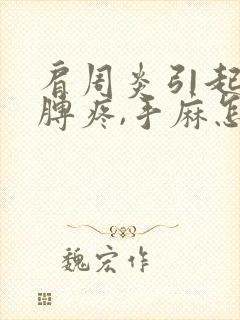 肩周炎引起
脾疼,手麻怎
魏宏作